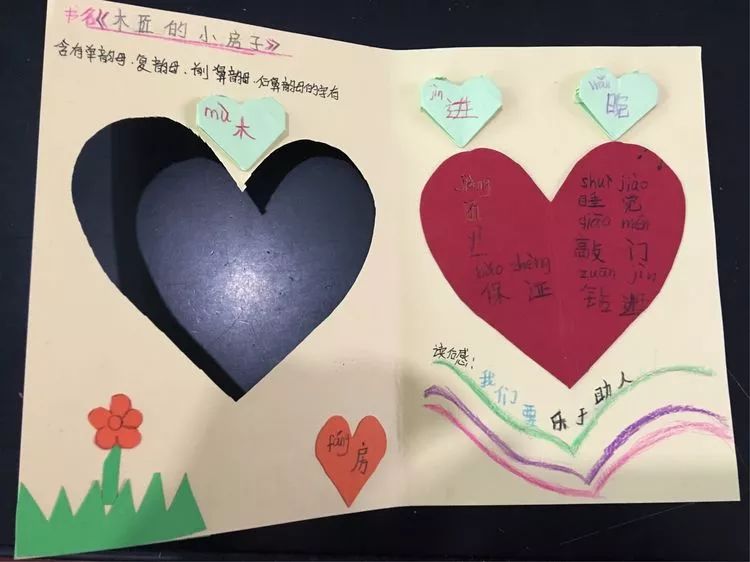 书名《木匠的小房子》
含有单韵母、复韵母、前鼻韵母、后鼻韵母的字有
mù
木
fáng
房
jìn
进
wǎn
晚
jiàng
匠
yī
一
bǎo zhèng
保 证
shuì jiào
睡 觉
qiāo mén
敲 门
zuān jìn
钻 进
读后感：
我们要乐于助人